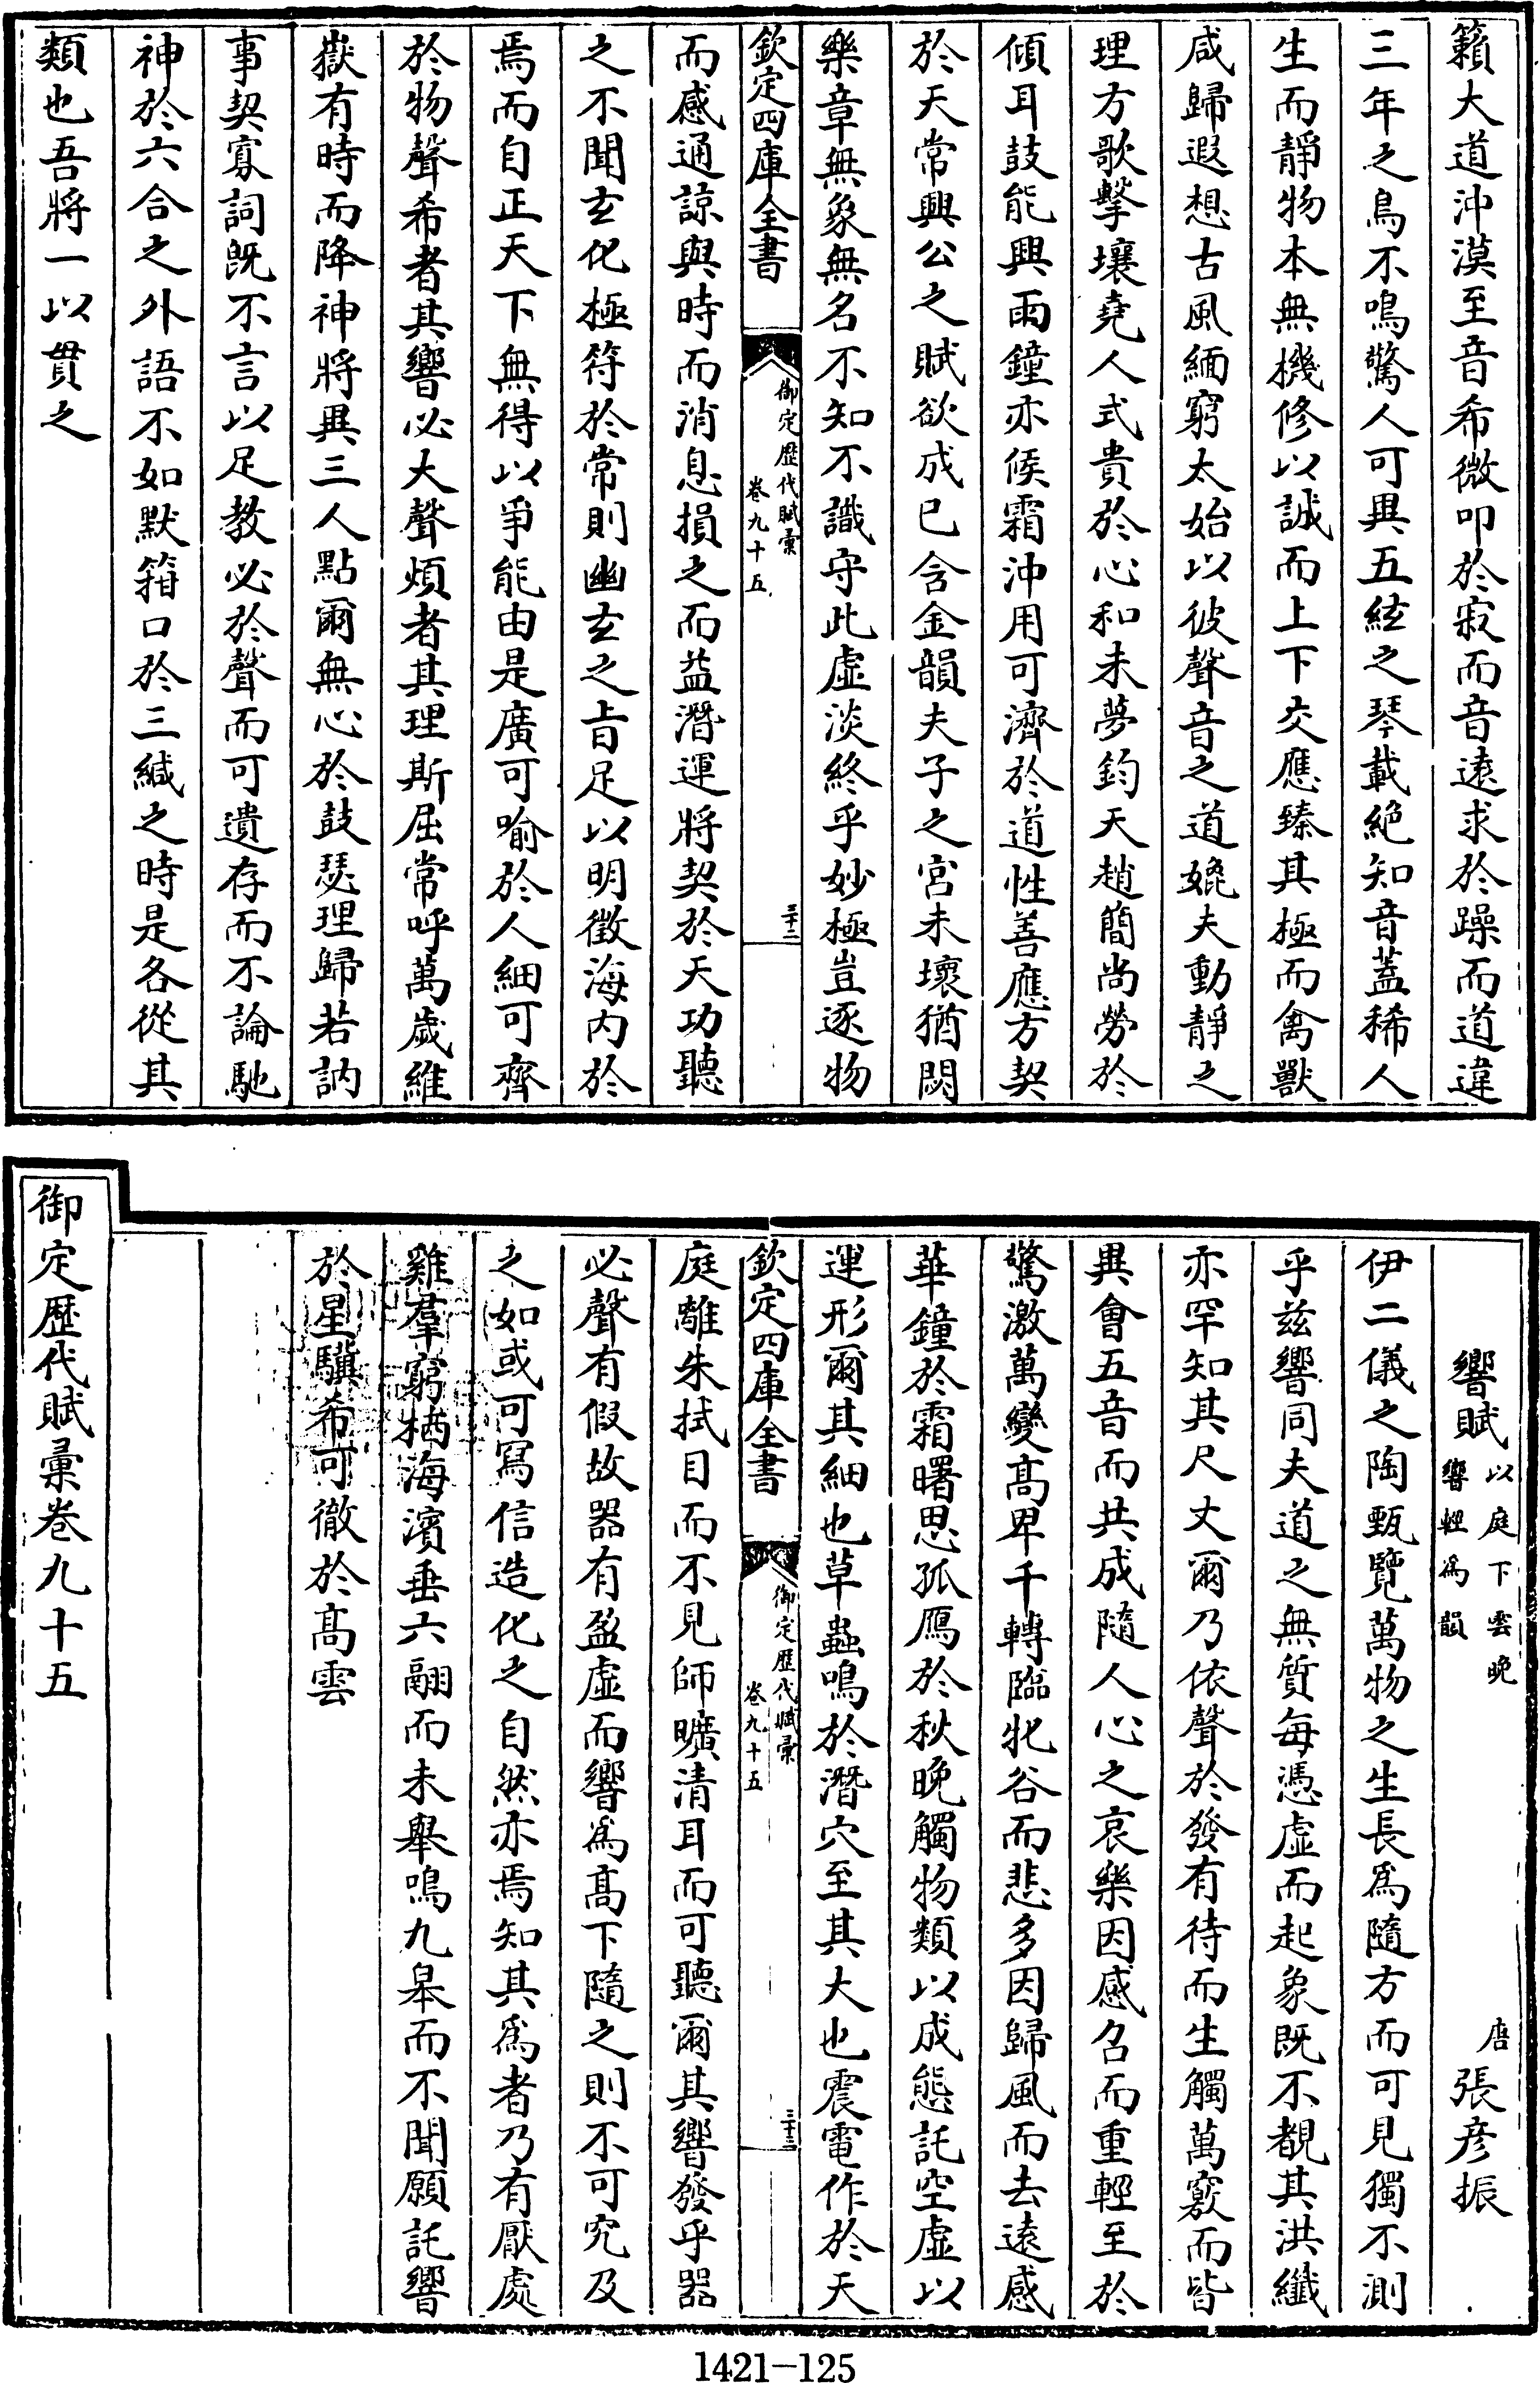 籟大道沖漠至音希微叩於寂而音遠求於躁而道違
三年之鳥不鳴驚人可異五絃之琴載絶知音蓋稀人
生而靜物本無機修以誠而上下交應臻其極而禽獸
咸歸遐想古風緬窮太始以彼聲音之道媲夫動靜之
理方歌擊壤堯人式貴於心和未夢鈞天趙簡尚勞於
傾耳鼓能興雨鐘亦候霜沖用可濟於道性善應方契
於天常興公之賦欲成已含金韻夫子之宮未壞猶閟
樂章無象無名不知不識守此虛淡終乎妙極豈逐物
欽定四庫全書
御定歷代賦彙
卷九十五
三十二
而感通諒與時而消息損之而益潛運將契於天功聽
之不聞玄化極符於常則幽玄之旨足以明徵海內於
焉而自正天下無得以爭能由是廣可喻於人細可齊
於物聲希者其響必大聲煩者其理斯屈常呼萬歲維
嶽有時而降神將異三人點爾無心於鼓瑟理歸若訥
事契寡詞既不言以足教必於聲而可遺存而不論馳
神於六合之外語不如默箝口於三緘之時是各從其
類也吾將一以貫之
響賦以庭下雲晚響輕為韻 唐張彥振
伊二儀之陶甄覽萬物之生長為隨方而可見獨不測
乎茲響同夫道之無質每憑虛而起象既不覩其洪纖
亦罕知其尺丈爾乃依聲於發有待而生觸萬竅而皆
異會五音而共成隨人心之哀樂因感召而重輕至於
驚激萬變高卑千轉臨牝谷而悲多因歸風而去遠感
華鐘於霜曙思孤鴈於秋晚觸物類以成態託空虛以
運形爾其細也草蟲鳴於潛穴至其大也震電作於天
欽定四庫全書
御定歷代賦彙
卷九十五
三十三
庭離朱拭目而不見師曠清耳而可聽爾其響發乎器
必聲有假故器有盈虛而響為高下隨之則不可究及
之如或可寫信造化之自然亦焉知其為者乃有厭處
雞羣窮栖海濱垂六翮而未舉鳴九皋而不聞願託響
於星驥希可徹於高雲
御定歷代賦彙卷九十五
1421-125